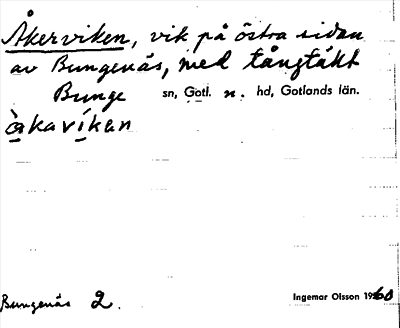 Åkerviken, vik på östra sidan
av Bungenäs, med tångtäkt
Bunge sn, Gotl. n. hd, Gotlands län.
àkavíkan
Bungenäs 2. Ingemar Olsson 1960